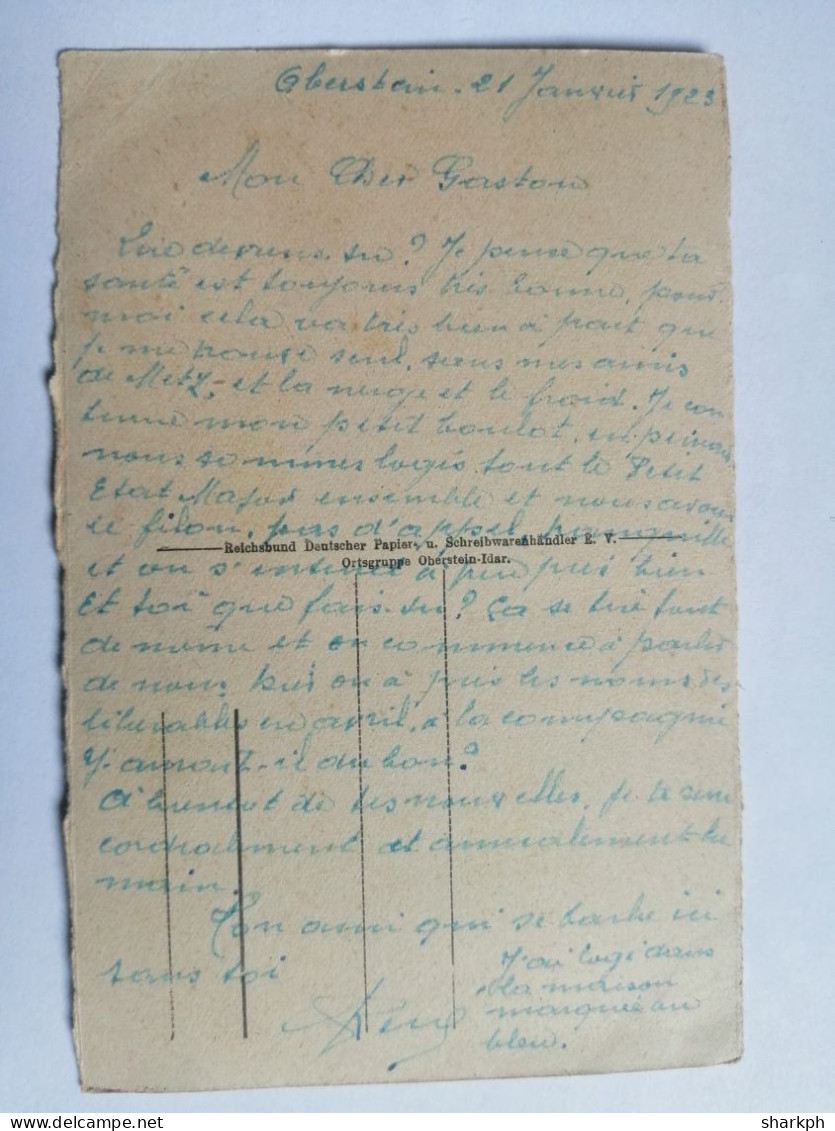 Oberstein. 21 Janvier 1923
Mon Cher Gaston
deviens-tu? Je pense que ta
santé est toujours très bonne, pour
moi cela va très bien à part que
je me trouve seul, sans mes amis
de Metz, et la neige et le froid. Je con
tinue mon petit boulot,
nous sommes logés tout le Petit
Etat Major ensemble et nous avons
le filon, pas d'appel,
Reichsbund Deutscher Papier- u. Schreibwarenhändler E. V.
Ortsgruppe Oberstein-Idar.
et on s'entend à peu près bien
Et toi que fais-tu? Ça se tire tout
de même et on commence à parler
de nous, on a pris les noms des
libérables en avril, à la compagnie
Y aurait-il du bon?
A bientôt de tes nouvelles, je te serre
cordialement et amicalement la
main.
Ton ami qui se barbe ici
sans toi
J'ai logé dans
la maison
marquée au
bleu.
sharkph